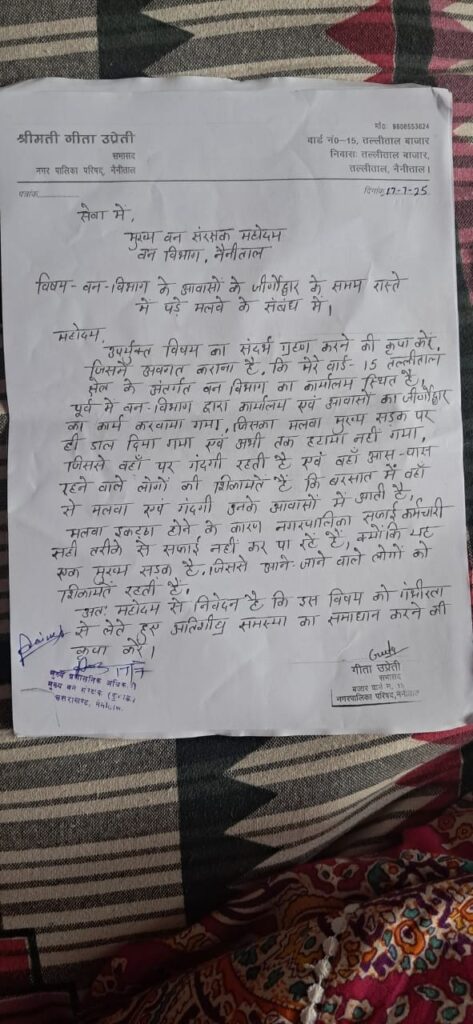 मो0: 9808553624
श्रीमती गीता उप्रेती
सभासद
नगर पालिका परिषद, नैनीताल
वार्ड नं0-15, तल्लीताल बाजार
निवासः तल्लीताल बाजार,
तल्लीताल, नैनीताल।
पत्रांक
दिनांक 17-7-25
सेवा में,
मुख्य वन संरक्षक महोदय
वन विभाग, नैनीताल
विषय- वन-विभाग के आवासों के जीर्णोद्वार के समय रास्ते
में पड़े मलवे के संबंध में।
महोदय,
उपर्युक्त विषय का संदर्भ ग्रहण करने की कृपा करें,
जिसमें अवगत कराना है, कि मेरे वार्ड-15 तल्लीताल
क्षेत्र के अंतर्गत वन विभाग का कार्यालय स्थित है,
पूर्व में वन-विभाग द्वारा कार्यालय एवं आवासों का जीर्णोद्वार
का कार्य करवाया गया, जिसका मलवा मुख्य सड़क पर
ही डाल दिया गया एवं अभी तक हटाया नहीं गया,
जिससे वहाँ पर गंदगी रहती है एवं वहाँ आस-पास
रहने वाले लोगों की शिकायतें हैं, कि बरसात में वहाँ
से मलवा एवं गंदगी उनके आवासों में आती है,
मलवा इकट्ठा होने के कारण नगरपालिका सफाई कर्मचारी
सही तरीके से सफाई नहीं कर पा रहे हैं, क्योंकि यह
एक मुख्य सड़क है, जिससे आने जाने वाले लोगों को
शिकायतें रहती है,
अतः महोदय से निवेदन है कि इस विषय को गंभीरता
से लेते हुए अतिशीघ्र समस्या का समाधान करने की
कृपा करें।
मुख्य प्रशासनिक अधिकारी
मुख्य वन संरक्षक (कुमाऊँ)
उत्तराखण्ड, नैनीताल
गीता उप्रेती
सभासद
बाजार वार्ड नं. 15
नगरपालिका परिषद, नैनीताल